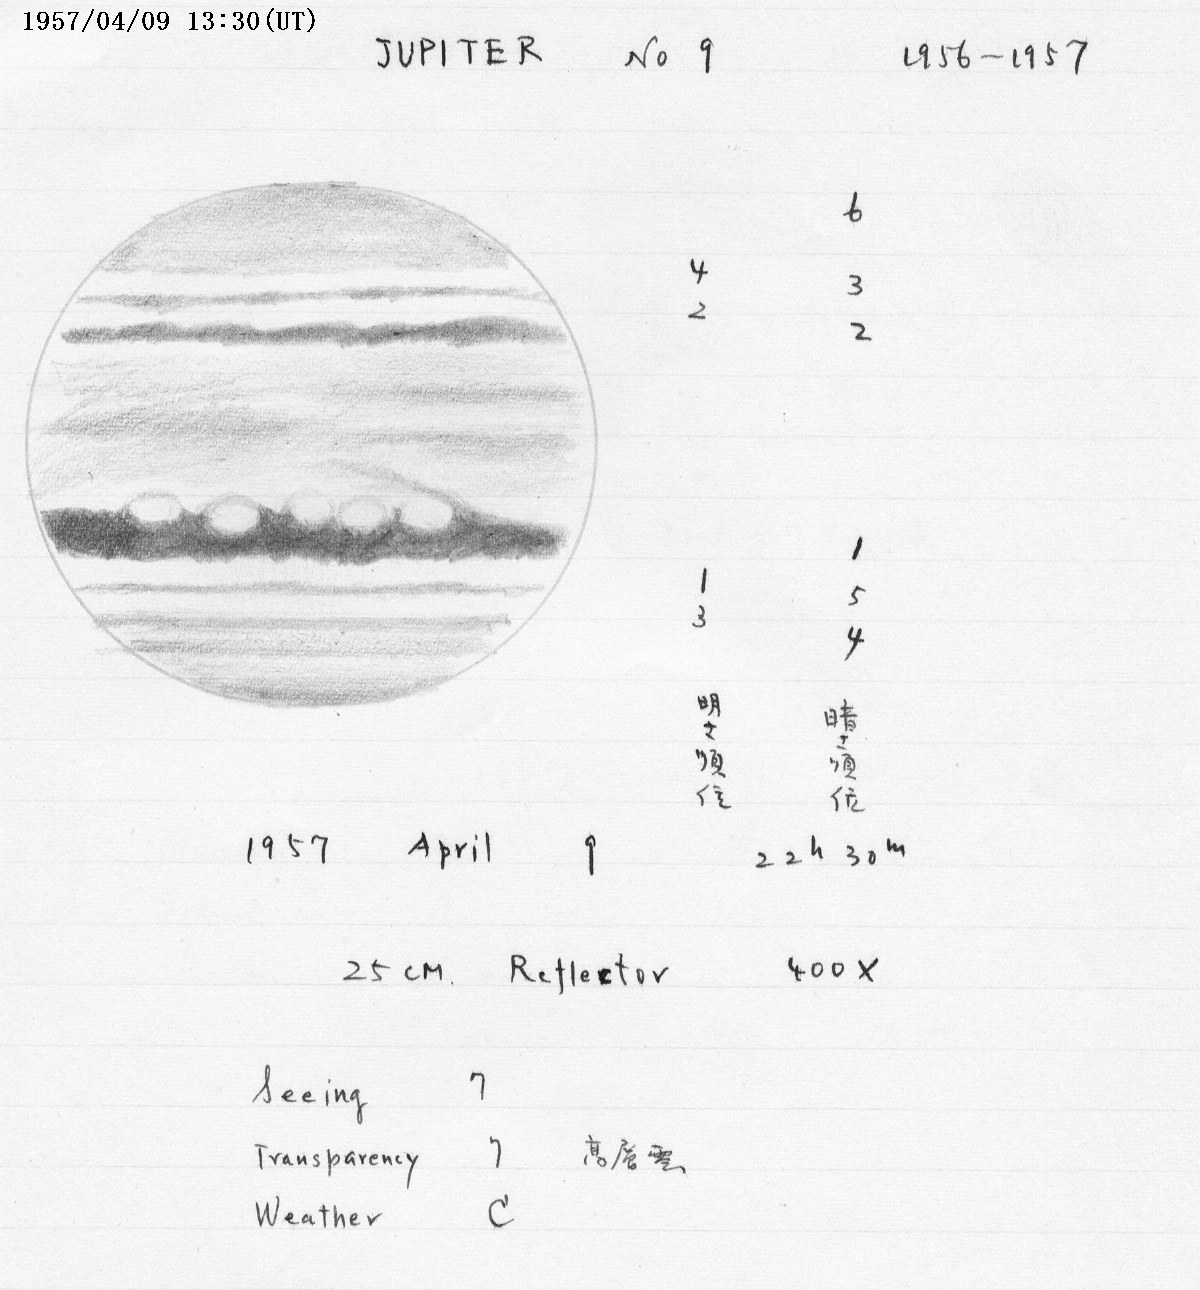 1957/04/09 13:30(UT)
JUPITER No 9 1956-1957
6
4 3
2 2
1
1 5
3 4
明サ順位 暗サ順位
1957 April 9 22h 30m
25 CM. Reflector 400X
Seeing 7
Transparency 7 高層雲
Weather C